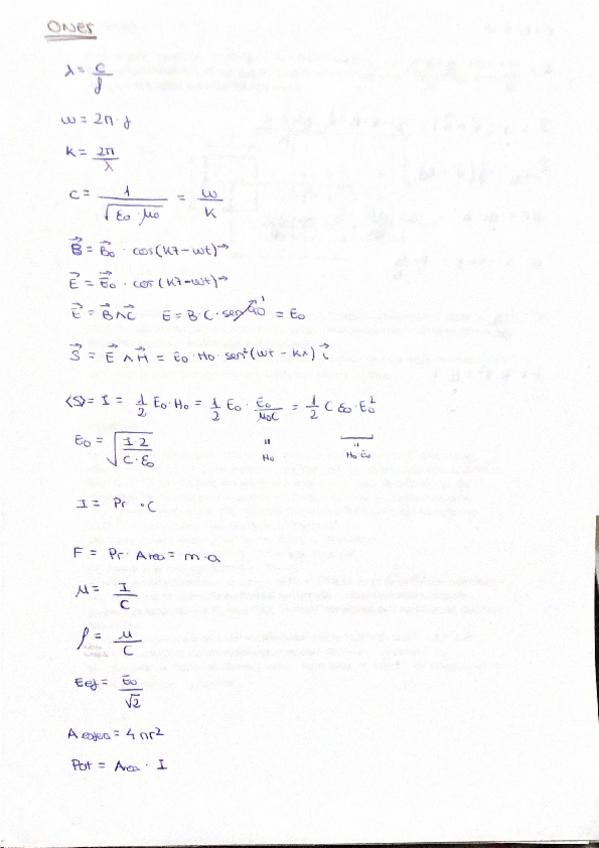 ONES
λ = c/f
ω = 2π·f
K = 2π/λ
C = 1/√(ε0·μ0) = ω/K
B⃗ = B⃗0 · cos(Kz-ωt)→
E⃗ = E⃗0 · cos(Kz-ωt)→
E⃗ = B⃗∧C⃗ E = B·C·sen90 1 = E0
S⃗ = E⃗∧H⃗ = E0·H0·sen²(ωt - Kx) i⃗
<S> = I = 1/2 E0·H0 = 1/2 E0 · E0/μ0C = 1/2 C ε0·E0²
E0 = √(I·2/C·ε0) " H0 "
I = Pr · C
F = Pr · Area = m·a
μ = I/C
ρ = μ/C
Eef = E0/√2
A = 4πr²
Pot = Area · I